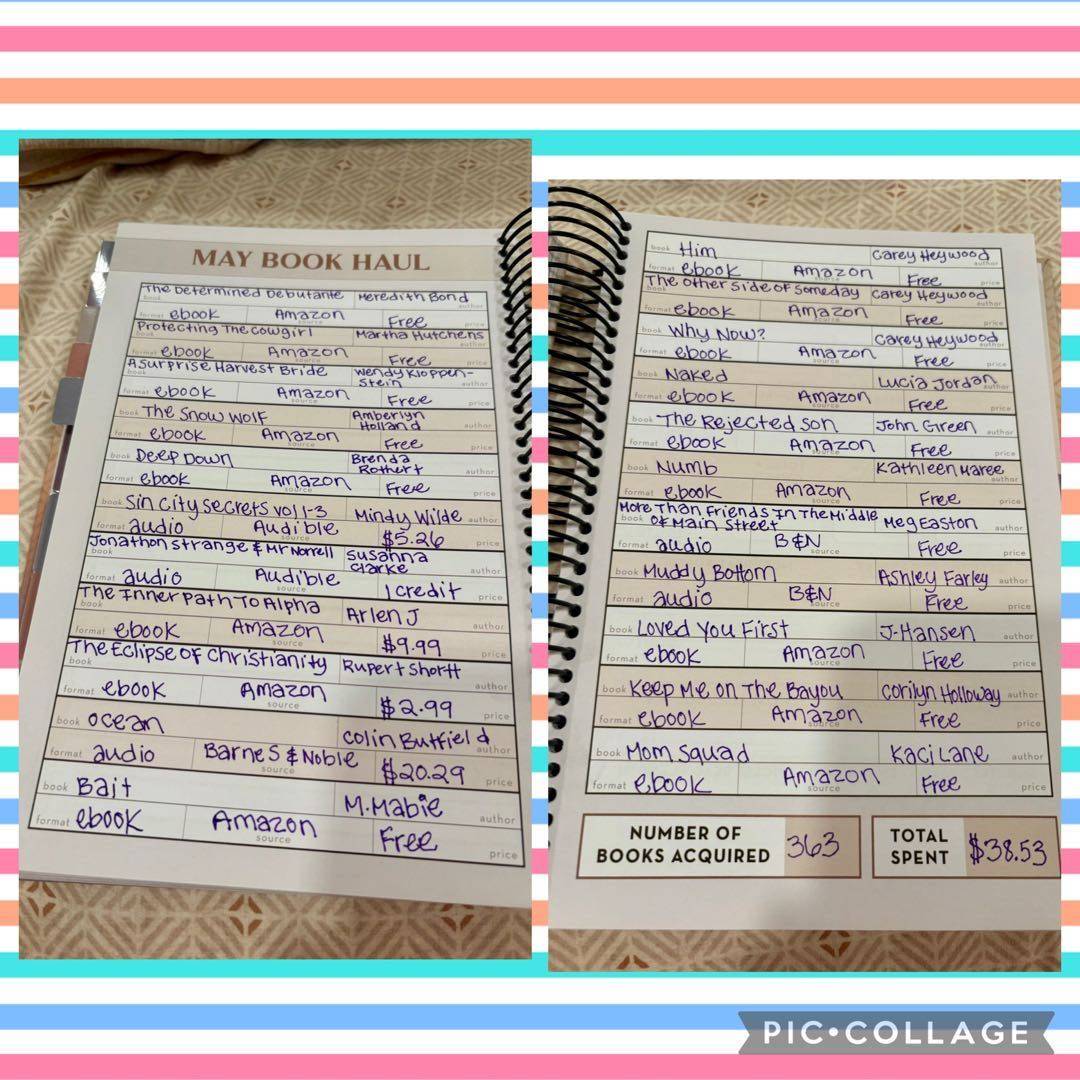 MAY BOOK HAUL
The Determined Debutante Meredith Bond
book
ebook Amazon Free
format price
Protecting The Cowgirl Martha Hutchens
book author
format ebook Amazon Free price
source
A Surprise Harvest Bride Wendy Kloppen-
book stein author
format ebook Amazon Free price
source
book The Snow Wolf Amberlyn
Holland author
format ebook Amazon Free price
source
book Deep Down Brenda
Rothert author
format ebook Amazon Free price
source
book Sin City Secrets vol 1-3 Mindy Wilde author
format audio Audible $5.26 price
source
Jonathon Strange & Mr Norrell Susanna
book Clarke author
format audio Audible 1 credit price
source
The Inner Path To Alpha Arlen J
book author
format ebook Amazon $9.99 price
source
The Eclipse of Christianity Rupert Shortt
book author
format ebook Amazon $2.99 price
source
book Ocean Colin Butfield author
format audio Barnes & Noble $20.29 price
source
book Bait M. Mabie author
format ebook Amazon Free price
source
book Him Carey Heywood
author
format ebook Amazon Free
The Other Side of Someday Carey Heywood
book author
format ebook Amazon Free
book Why Now? Carey Heywood
author
format ebook Amazon Free
book Naked Lucia Jordan
author
format ebook Amazon Free
book The Rejected Son John Green author
format ebook Amazon Free price
source
book Numb Kathleen Maree
author
format ebook Amazon Free price
More Than Friends In The Middle
Of Main Street Meg Easton author
format audio B&N Free price
book Muddy Bottom Ashley Farley author
format audio B&N Free price
source
book Loved You First J. Hansen author
format ebook Amazon Free price
source
book Keep Me on The Bayou Corilyn Holloway author
format ebook Amazon Free price
source
book Mom Squad Kaci Lane author
format ebook Amazon Free price
source
NUMBER OF
BOOKS ACQUIRED 363
TOTAL
SPENT $38.53
PIC•COLLAGE